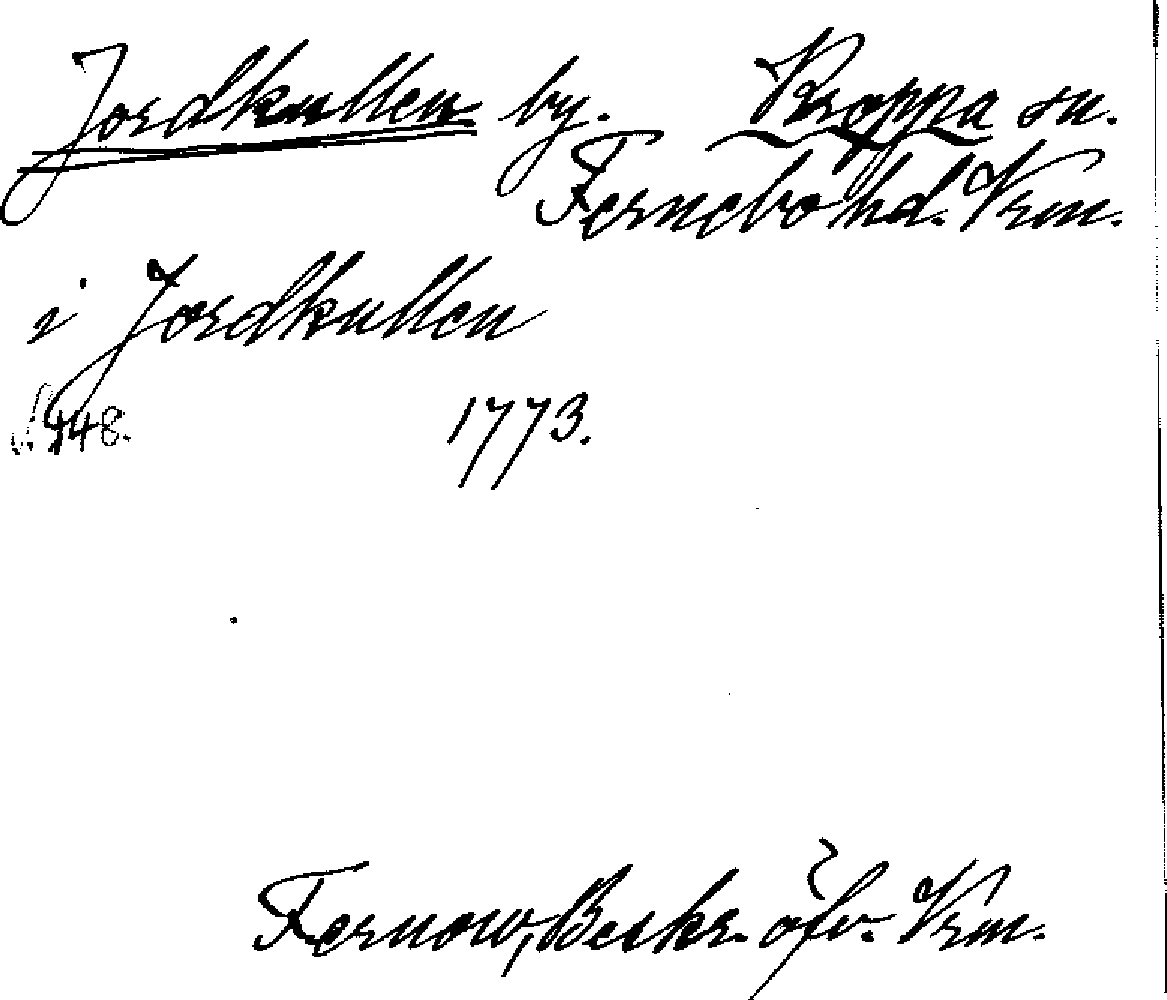 Jordkullen by. Kroppa sn.
Fernebo hd. Vrm.
i Jordkullen
s. 448. 1773.
Fernow, Beskr. öfv. Vrm.